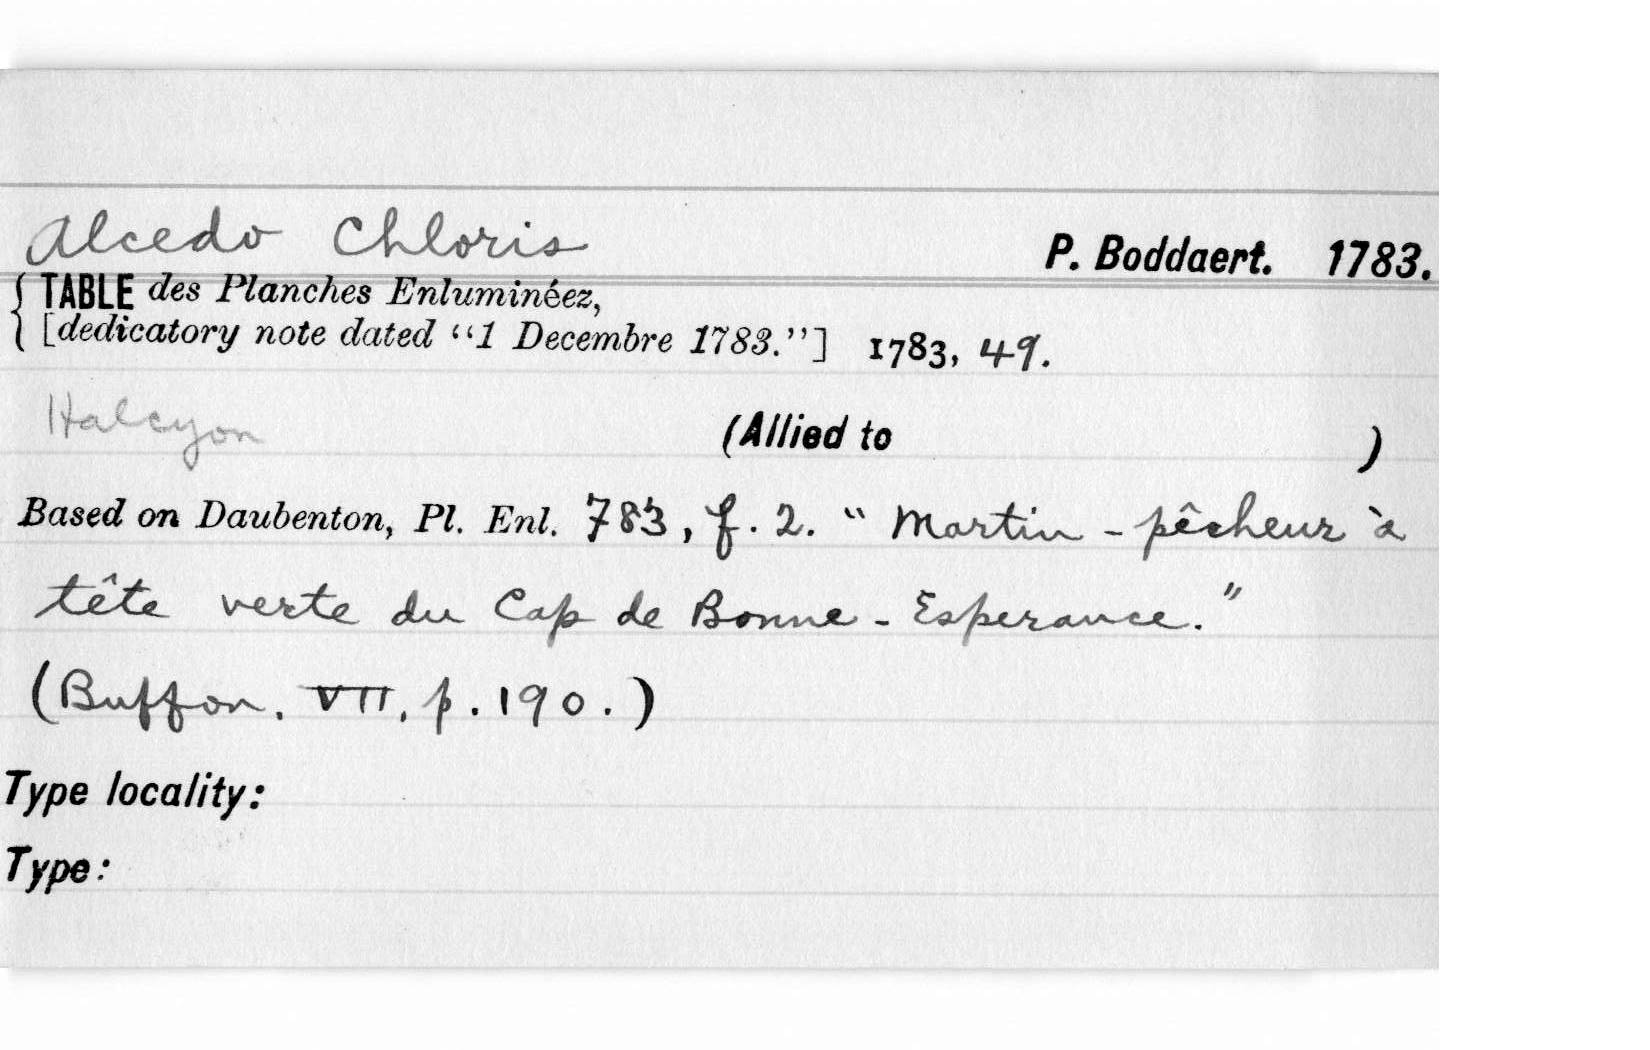 Alcedo Chloris P. Boddaert. 1783.
TABLE des Planches Enluminéez,
[dedicatory note dated “1 Decembre 1783.”] 1783, 49.
Halcyon (Allied to )
Based on Daubenton, Pl. Enl. 783, f. 2. “Martin-pêcheur à
tête verte du Cap de Bonne-Esperance.”
(Buffon. VII, p. 190.)
Type locality:
Type: